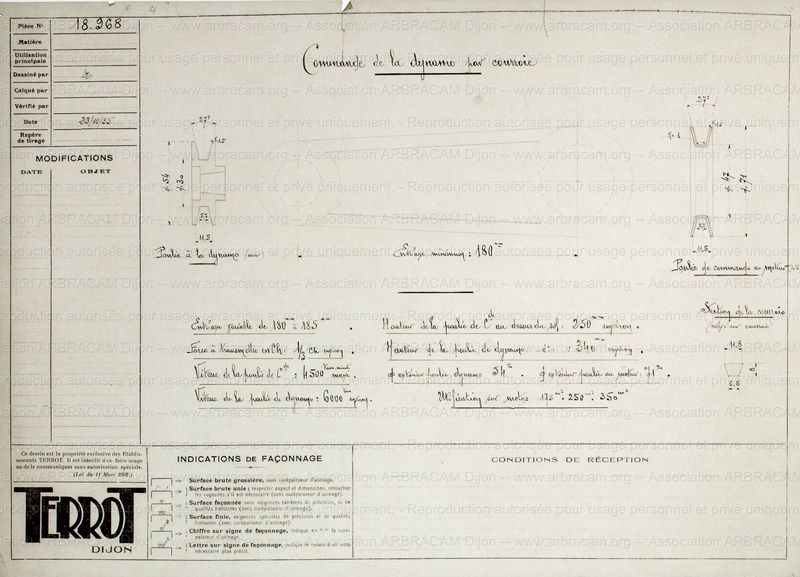 Pièce N° 18.968
Matière
Utilisation principale
Dessiné par
Calqué par
Vérifié par
Date 23/10/35
Repère de tirage
MODIFICATIONS
DATE OBJET
Commande de la dynamo par courroie
Poulie à la dynamo
Entr'axe minimum : 180 mm
Poulie de commande au moteur
Section de la courroie
11,8
Entr'axe variable de 180 mm à 185 mm.
Force à transmettre en Ch: 1/3 Ch
Vitesse de la poulie de Cde : 4500
Vitesse de la poulie de dynamo : 6000
Hauteur de la poulie de Cde au dessus du sol : 250 mm environ.
Hauteur de la poulie de dynamo d° : 340 mm environ.
φ extérieur poulie dynamo 54 mm. φ extérieur poulie au moteur: 71 mm.
Utilisation sur motos 175 250 350
Ce dessin est la propriété exclusive des Etablis-
sements TERROT. Il est interdit d'en faire usage
ou de le communiquer sans autorisation spéciale.
(Loi du 11 Mars 1902.)
TERROT
DIJON
INDICATIONS DE FAÇONNAGE
Surface brute grossière, sans surépaisseur d'usinage.
Surface brute unie ; respecter aspect et dimensions, retoucher
les rugosités s'il est nécessaire (sans surépaisseur d'usinage).
Surface façonnée sans exigences extrêmes de précision, ni de
qualités frottantes (avec surépaisseur d'usinage).
Surface finie, exigences spéciales de précision et de qualités
frottantes (avec surépaisseur d'usinage).
Chiffre sur signe de façonnage, indique en
Lettre sur signe de façonnage,
nécessaire plus précis.
CONDITIONS DE RÉCEPTION
Association ARBRACAM Dijon -- www.arbracam.org -- Association ARBRACAM Dijon
Reproduction autorisée pour usage personnel et privé uniquement.